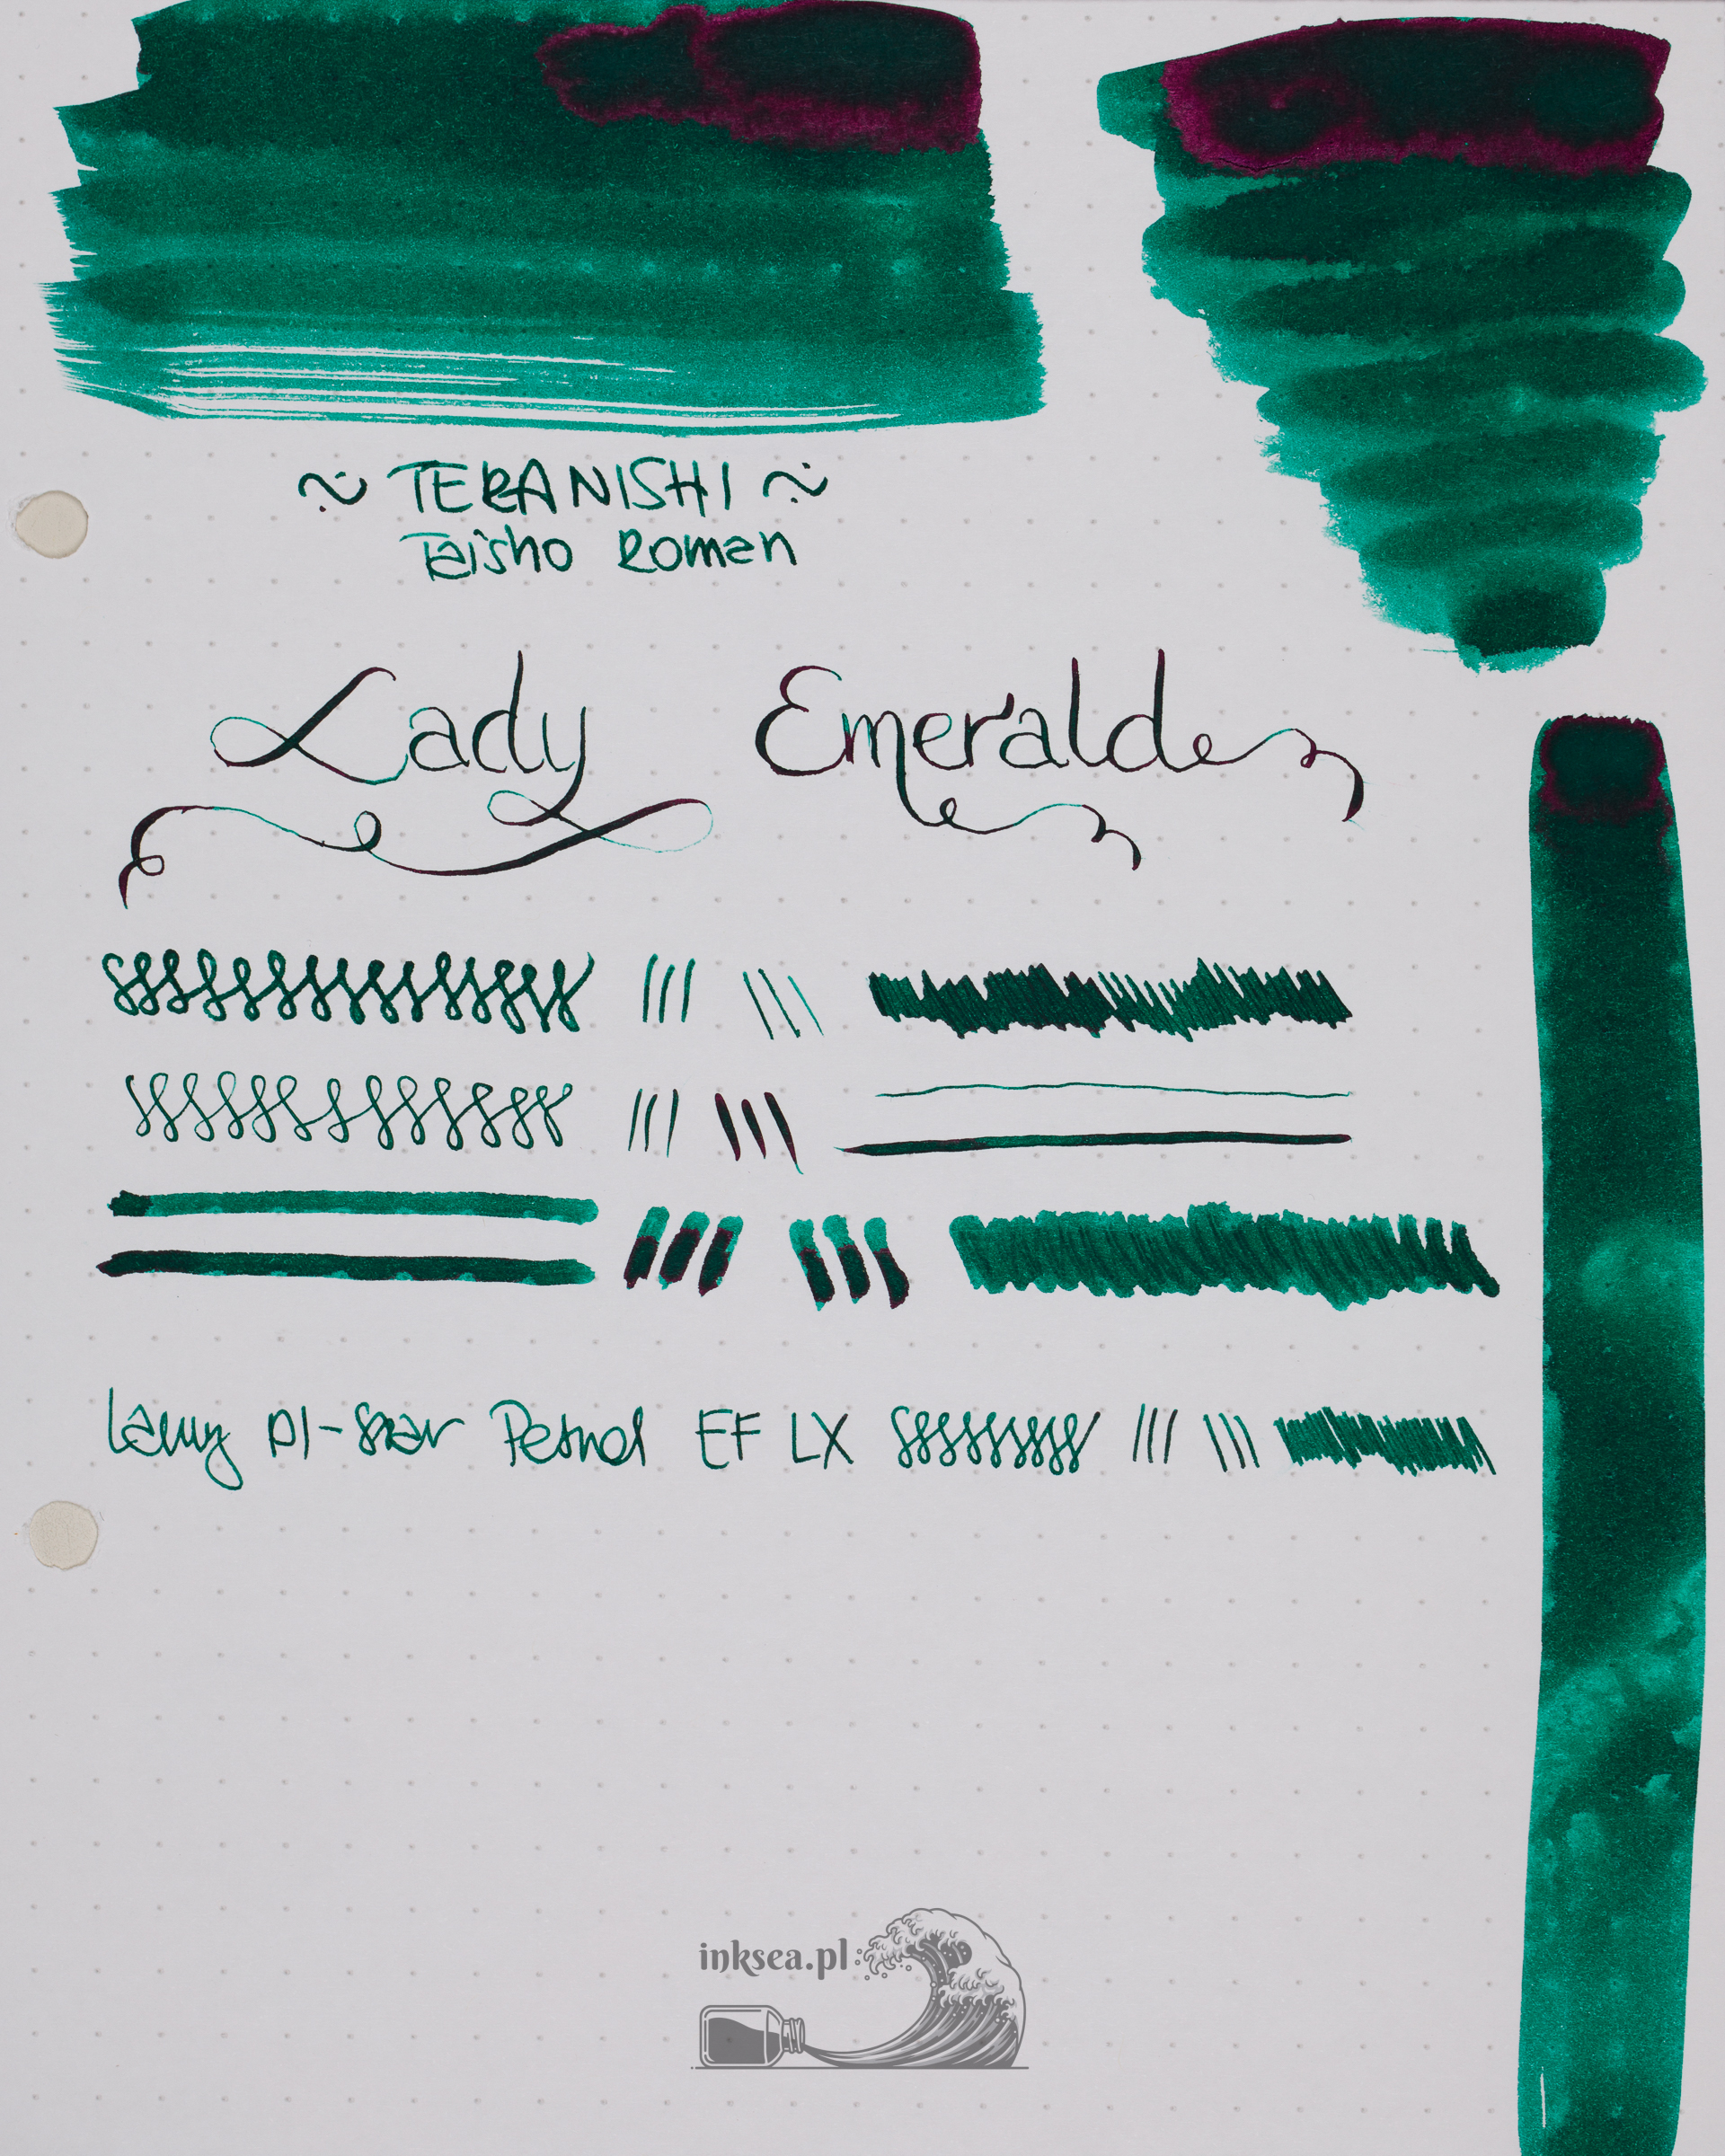 ~ TERANISHI ~
Taisho Roman
Lady Emerald
Lamy Al-star Petrol EF LX
inksea.pl